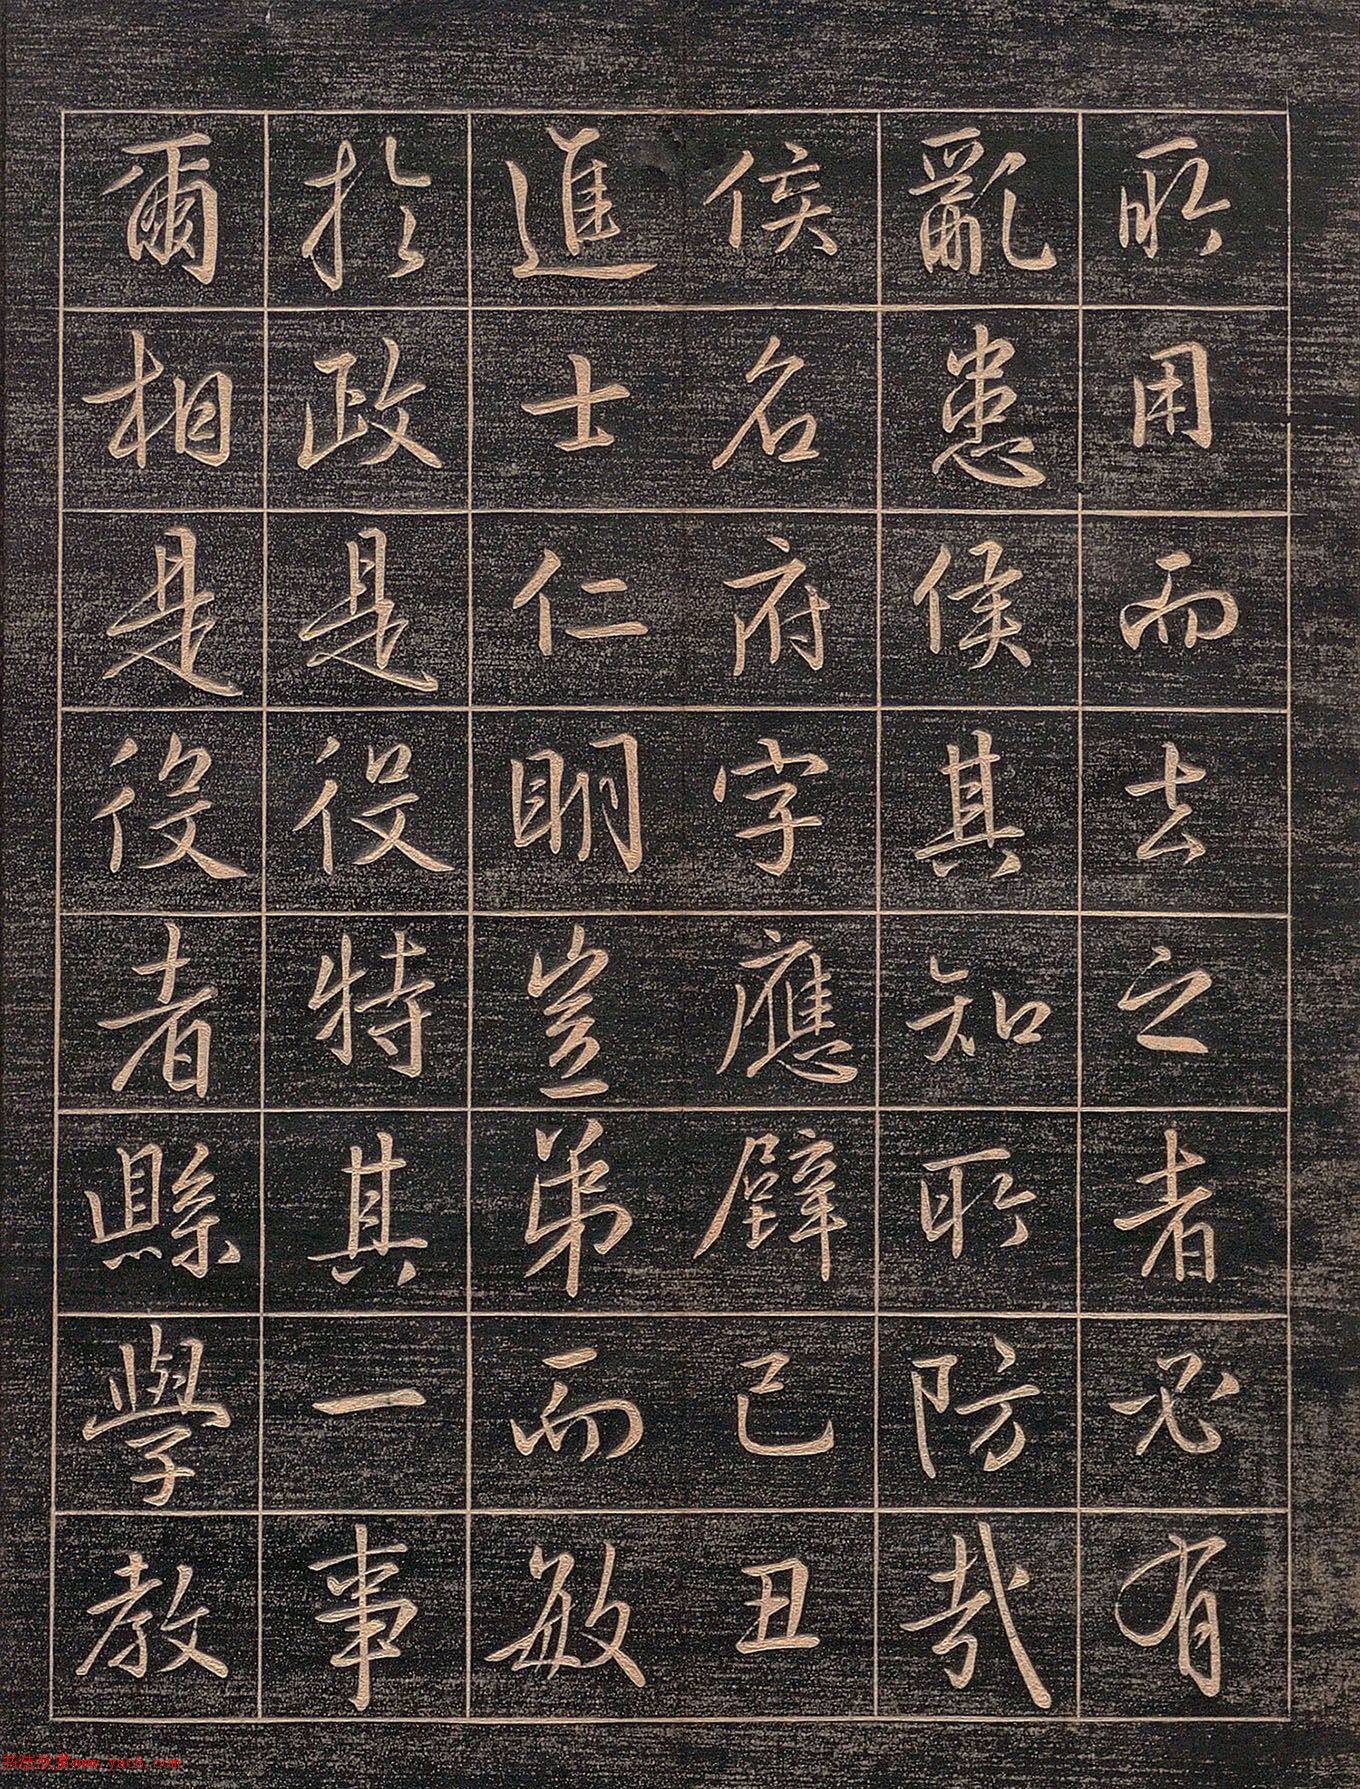 所用而去之者必有
亂患侯其知所防哉
侯名府字應辟己丑
進士仁明豈弟而敏
於政是役特其一事
爾相是役者縣學教
书法欣赏www.yac8.com